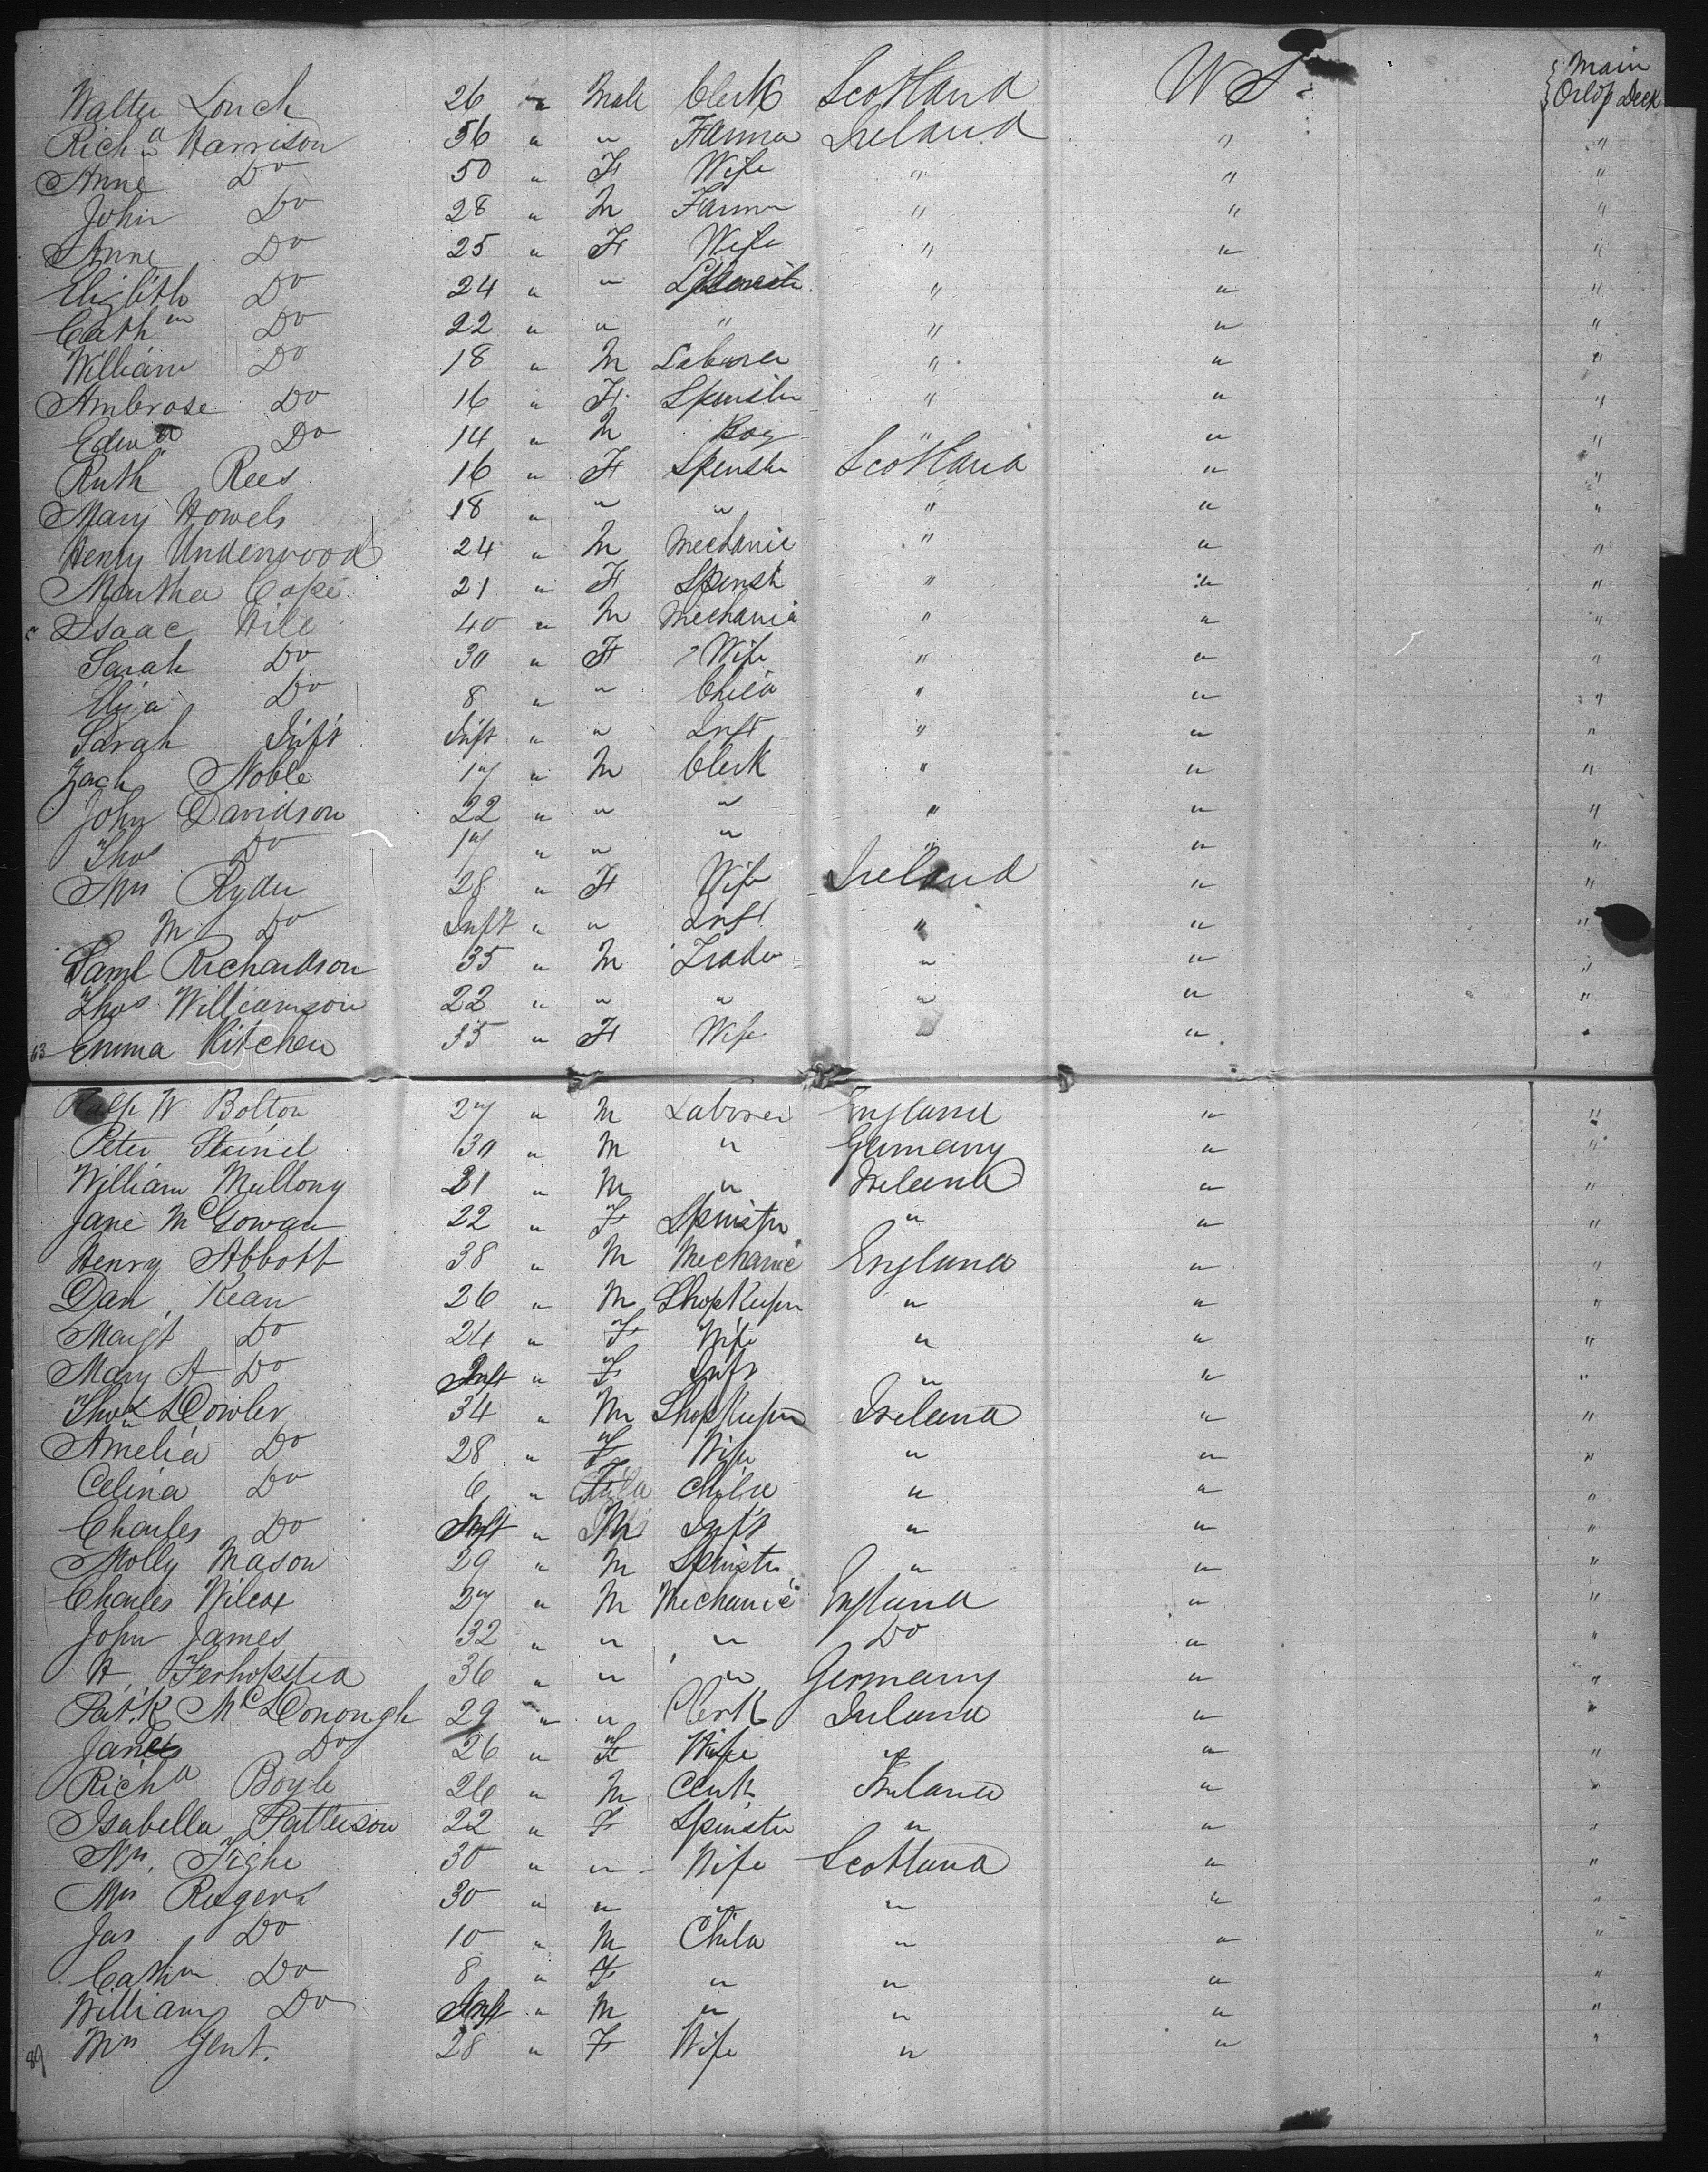 Walter Louch 26 " Male Clerk Scotland U S { Main Orlop Deck
Richd Harrison 56 " " Farmer Ireland " "
Anne Do 50 " F Wife " " "
John Do 28 " M Farmer " " "
Anne Do 25 " F Wife " " "
Elizbth Do 24 " " Spinster " " "
Cathn Do 22 " " " " " "
William Do 18 " M Laborer " " "
Ambrose Do 16 " F Spinster " " "
Edwd Do 14 " M Boy " " "
Ruth Rees 16 " F Spinster Scotland " "
Mary Howels 18 " " " " " "
Henry Underwood 24 " M Mechanic " " "
Martha Cope 21 " F Spinst " " "
Isaac Hill 40 " M Mechanic " " "
Sarah Do 30 " F Wife " " "
Eliza Do 8 " " Child " " "
Sarah Inft Inft " " Inft " " "
Zach Noble 17 " M Clerk " " "
John Davidson 22 " " " " " "
Thos Do 17 " " " " " "
Mrs Ryder 28 " F Wife Ireland " "
M Do Inft " " Inft " " "
Saml Richardson 35 " M Trader " " "
Thos Williamson 22 " " " " " "
63 Emma Kitchen 35 " F Wife " " "
Ralph W Bolton 27 " M Laborer England " "
Peter Steinel 30 " M " Germany " "
William Mullony 21 " M " Ireland " "
Jane McGowan 22 " F Spinster " " "
Henry Abbott 38 " M Mechanic England " "
Dan Kean 26 " M ShopKeeper " " "
Margt Do 24 " F Wife " " "
Mary A Do Inft " F Inft " " "
Thos Dowler 34 " M ShopKeeper Ireland " "
Amelia Do 28 " F Wife " " "
Celina Do 6 " F Child " " "
Charles Do Inft " M Inft " " "
Molly Mason 29 " M Spinster " " "
Charles Wilcox 27 " M Mechanic England " "
John James 32 " " " Do " "
A Ferhopsted 36 " " " Germany " "
Patk McDonough 29 " " Clerk Ireland " "
Jane Do 26 " F Wife " " "
Richd Boyle 26 " M Clerk Ireland " "
Isabella Patterson 22 " F Spinster " " "
Mrs. Tighe 30 " " Wife Scotland " "
Mrs Rogers 30 " " " " " "
Jas Do 10 " M Child " " "
Cathn Do 8 " F " " " "
William Do Inft " M " " " "
89 Mrs Gent. 28 " F Wife " " "